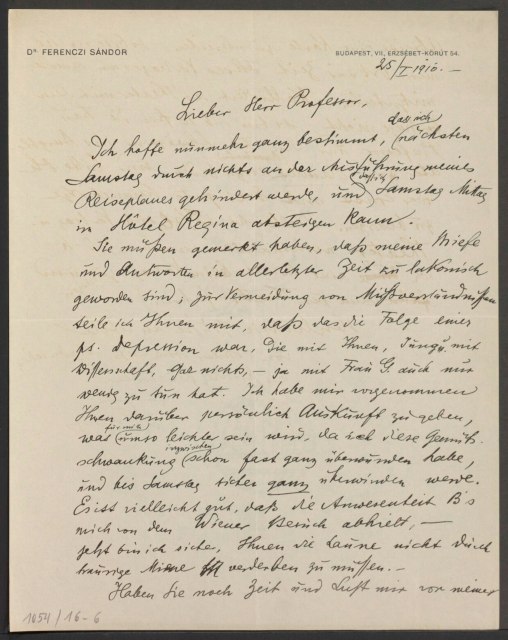 Dr. FERENCZI SÁNDOR
BUDAPEST, VII, ERZSÉBET-KÖRÚT 54.
25/I 1910.–
Lieber Herr Professor,
dass ich
Ich hoffe nunmehr ganz bestimmt, nächsten
Samstag durch nichts an der Ausführung meines
dass ich
Reiseplanes gehindert werde, und Samstag Mittag
im Hôtel Regina absteigen kann.
Sie müßen gemerkt haben, daß meine Briefe
und Antworten in allerletzter Zeit zu lakonisch
geworden sind; zur Vermeidung von Mißverständnissen
teile ich Ihnen mit, daß das die Folge einer
ps. Depression war, die mit Ihnen, Jung u. mit
Wissenschaft, gar nichts, – ja mit Frau G. auch nur
wenig zu tun hat. Ich habe mir vorgenommen
Ihnen darüber persönlich Auskunft zu geben,
für mich
was umso leichter sein wird, da ich diese Gemüts-
inzwischen
schwankung schon fast ganz überwunden habe,
und bis Samstag sicher ganz überwinden werde.
Es ist vielleicht gut, daß die Anwesenheit B's
mich von dem Wiener Besuch abhielt, –
jetzt bin ich sicher, Ihnen die Laune nicht durch
traurige Miene verderben zu müssen. –
Haben Sie noch Zeit und Lust mir vor meiner
1054/16-6